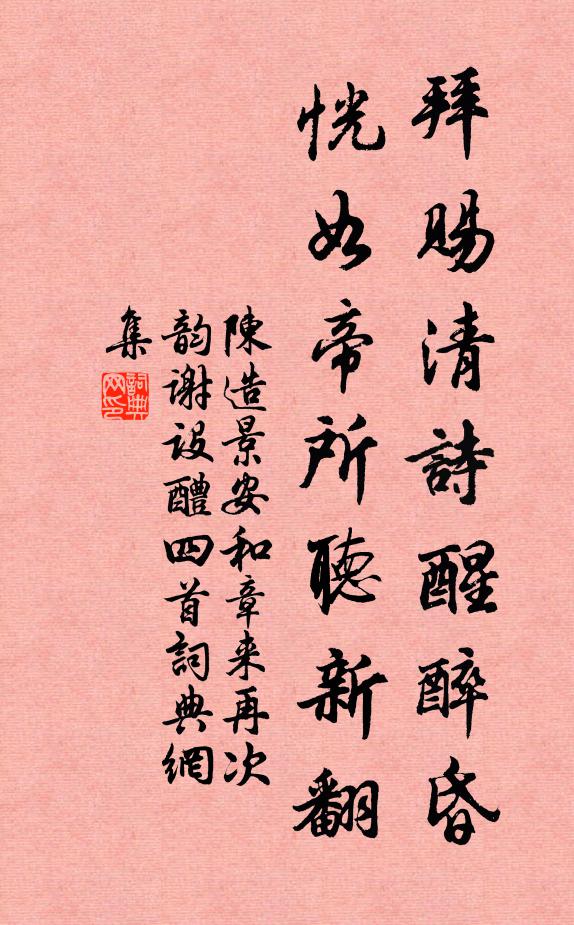 拜賜清詩醒醉昏
恍如帝所聽新翻
陳造景安和章来再次
韵謝設醴四首詞典網
集
詞典网印